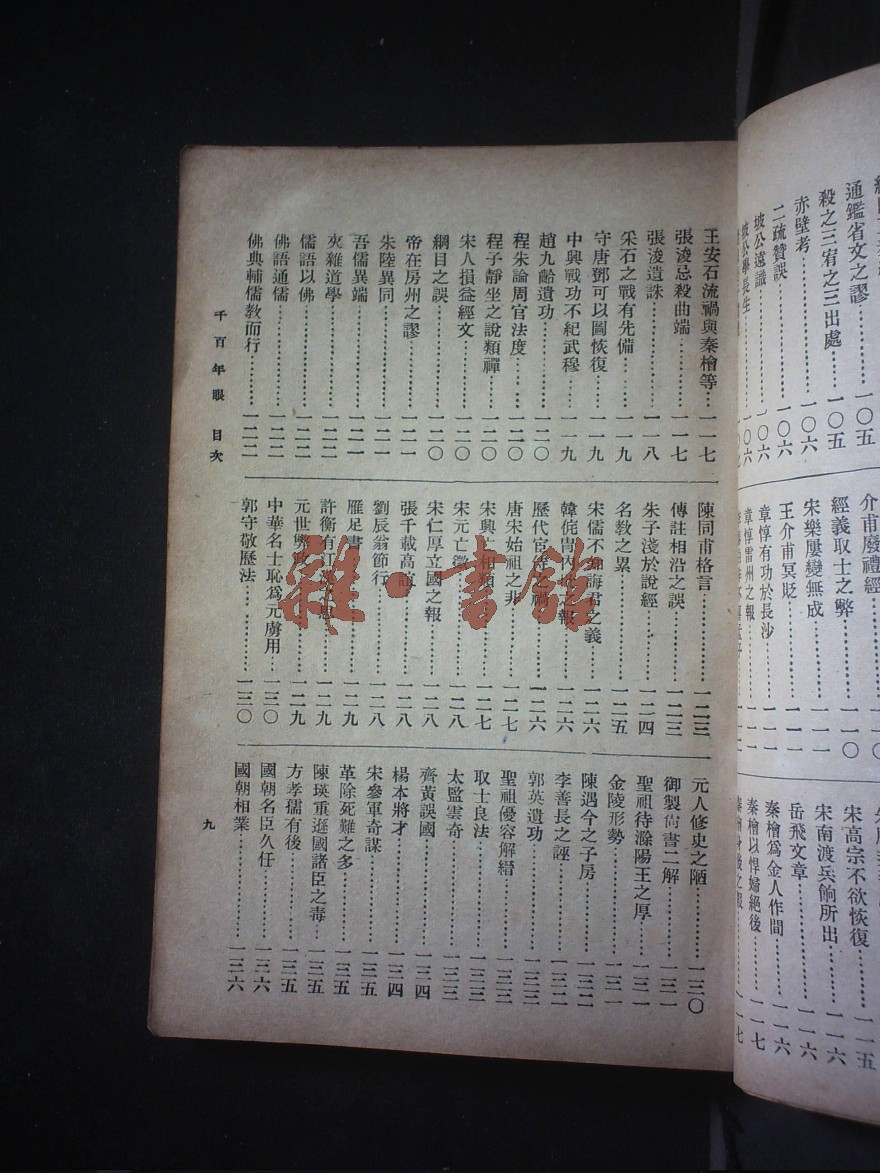 通鑑省文之謬
殺之三宥之三出處……一〇五
赤壁考……一〇六
二疏贊誤……一〇六
坡公遠識……一〇六
坡公學長生
介甫廢禮經
經義取士之弊……一一〇
宋樂屢變無成……一一
王介甫冥貶……一一
章惇有功於長沙……一一
章惇雷州之報
宋高宗不欲恢復……一一五
宋南渡兵餉所出……一一六
岳飛文章……一一六
秦檜爲金人作間……一一六
秦檜以悍婦絕後……一一七
王安石流禍與秦檜等……一一七
張淩忌殺曲端……一一七
張淩遺誅……一一八
采石之戰有先備……一一九
守唐鄧可以圖恢復……一一九
中興戰功不紀武穆……一一九
趙九齡遺功……一二〇
程朱論周官法度……一二〇
程子靜坐之說類禪……一二〇
宋人損益經文……一二〇
綱目之誤……一二〇
帝在房州之謬……一二一
朱陸異同……一二一
吾儒異端……一二一
夾雜道學……一二二
儒語以佛……一二二
佛語通儒……一二二
佛典輔儒教而行……一二二
陳同甫格言……一二三
傳註相沿之誤……一二三
朱子淺於說經……一二四
名敎之累……一二五
宋儒不知誨君之義……一二六
韓侂冑內批之報……一二六
歷代宦侍之禍……一二六
唐宋始祖之非……一二七
宋興亡相類……一二七
宋元亡徵……一二八
宋仁厚立國之報……一二八
張千載高誼……一二八
劉辰翁節行……一二八
雁足書……一二九
許衡有江……一二九
元世弊政……一二九
中華名士恥爲元虜用……一三〇
郭守敬歷法……一三〇
元人修史之陋……一三〇
御製尙書二解……一三一
聖祖待滁陽王之厚……一三一
金陵形勢……一三一
陳遇今之子房……一三二
李善長之誣……一三二
郭英遺功……一三三
聖祖優容解縉……一三三
取士良法……一三三
太監雲奇……一三三
齊黃誤國……一三四
楊本將才……一三四
宋參軍奇謀……一三五
革除死難之多……一三五
陳瑛重遜國諸臣之毒……一三五
方孝孺有後……一三五
國朝名臣久任……一三六
國朝相業……一三六
千百年眼 目次
九
雜·書館